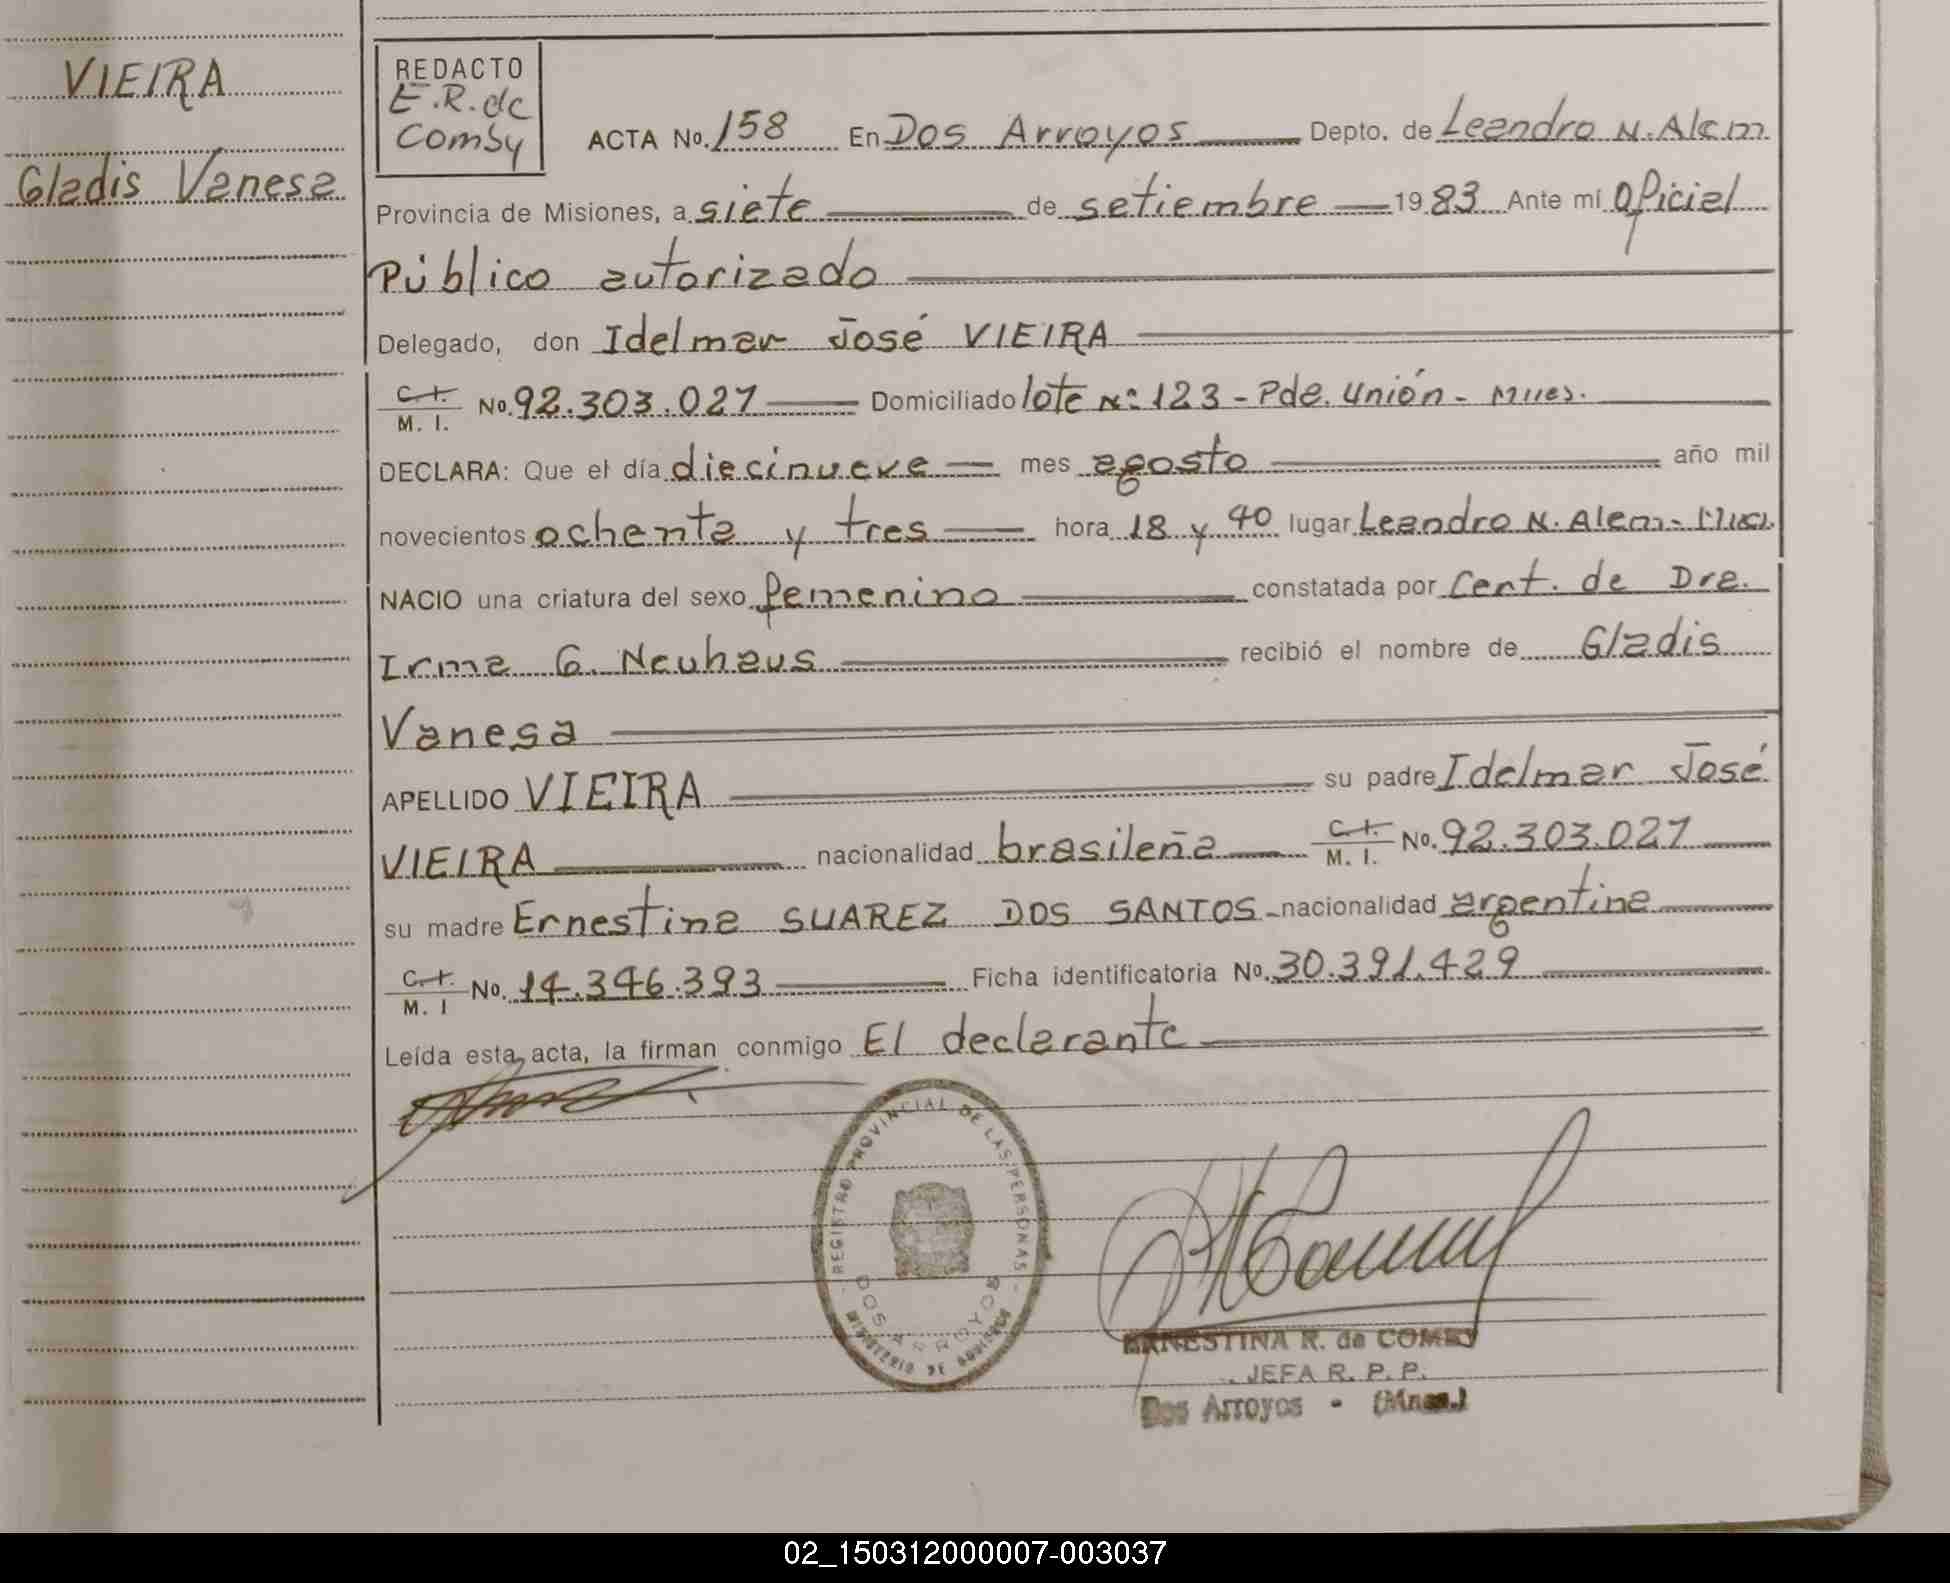 VIEIRA
Gladis Vanesa
REDACTO
E.R. de
Comby
ACTA No. 158 En Dos Arroyos Depto. de Leandro N. Alem
Provincia de Misiones, a siete de setiembre 1983 Ante mí Oficial
Público autorizado
Delegado, don Idelmar José VIEIRA
C.I. M. I. No. 92.303.027 Domiciliado lote Nº 123 - Pde. Unión - Mnes.
DECLARA: Que el día diecinueve mes agosto año mil
novecientos ochenta y tres hora 18 y 40 lugar Leandro N. Alem - Mnes.
NACIO una criatura del sexo femenino constatada por Cert. de Dra.
Irma G. Neuhaus recibió el nombre de Gladis
Vanesa
APELLIDO VIEIRA su padre Idelmar José
VIEIRA nacionalidad brasileña C.I. M. I. No. 92.303.027
su madre Ernestina SUAREZ DOS SANTOS - nacionalidad argentina
C.I. M. I No. 14.346.393 Ficha identificatoria No. 30.391.429
Leída esta acta, la firman conmigo El declarante
- REGISTRO PROVINCIAL DE LAS PERSONAS -
DOS ARROYOS
MINISTERIO DE GOBIERNO
ERNESTINA R. de COMBY
JEFA R. P. P.
Dos Arroyos - (Mnes.)
02_150312000007-003037